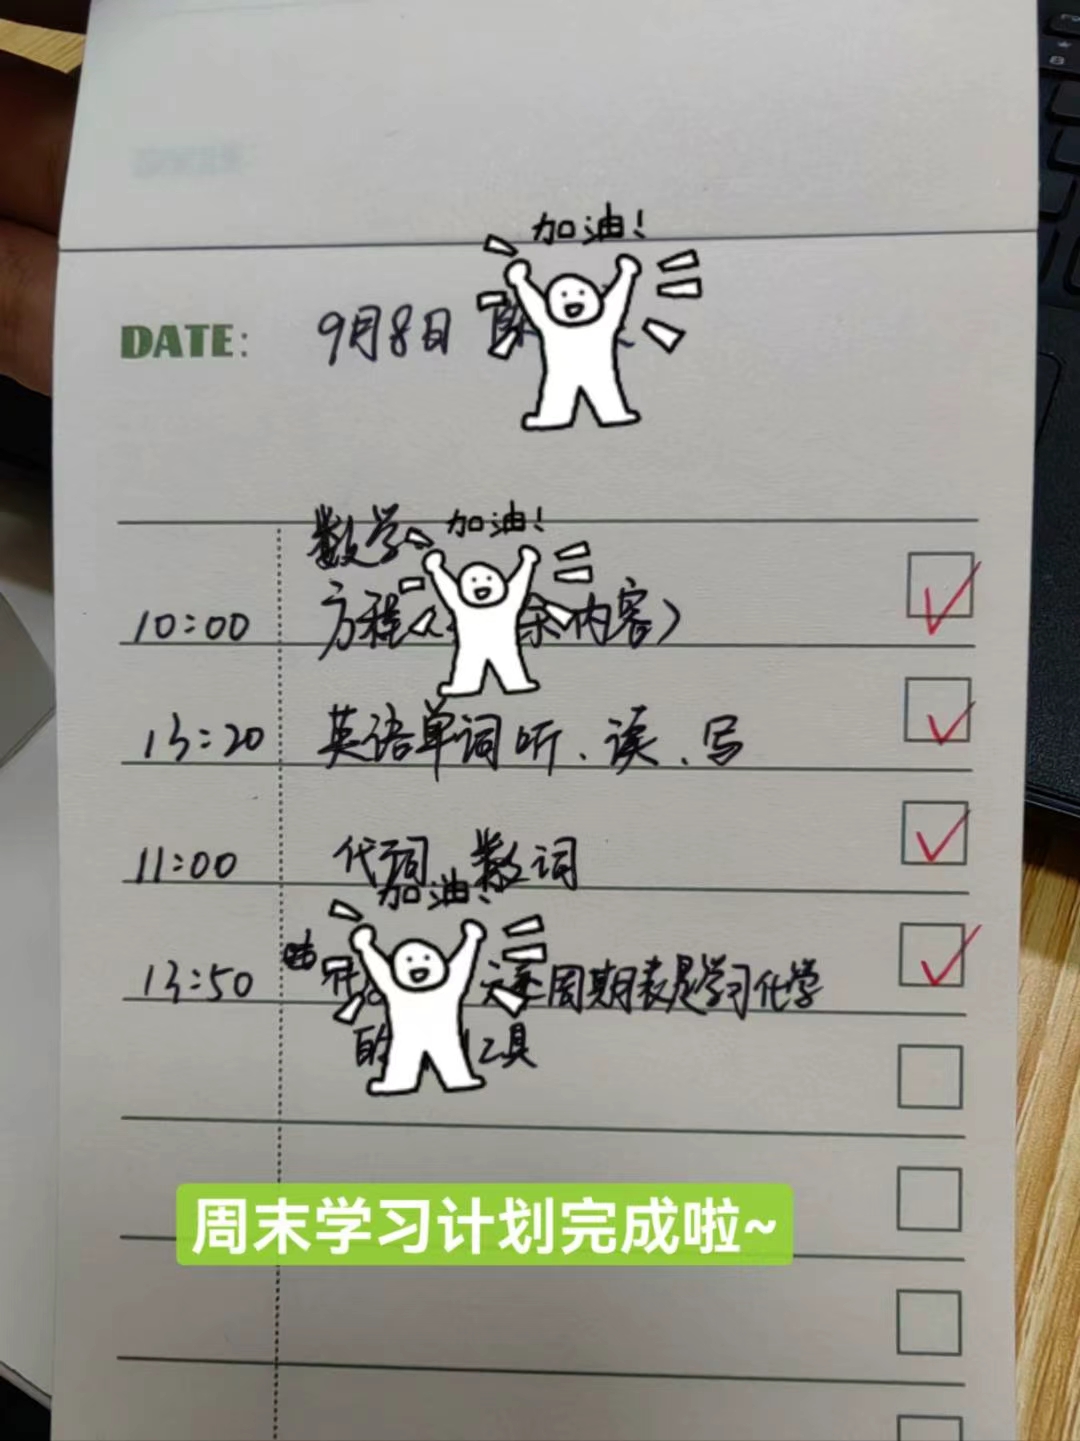 加油！
DATE: 9月8日
数学 加油！
10:00 方程 余内容）
13:20 英语单词听、读、写
11:00 代词、数词
加油！
13:50 元素周期表是学习化学
的 工具
周末学习计划完成啦~